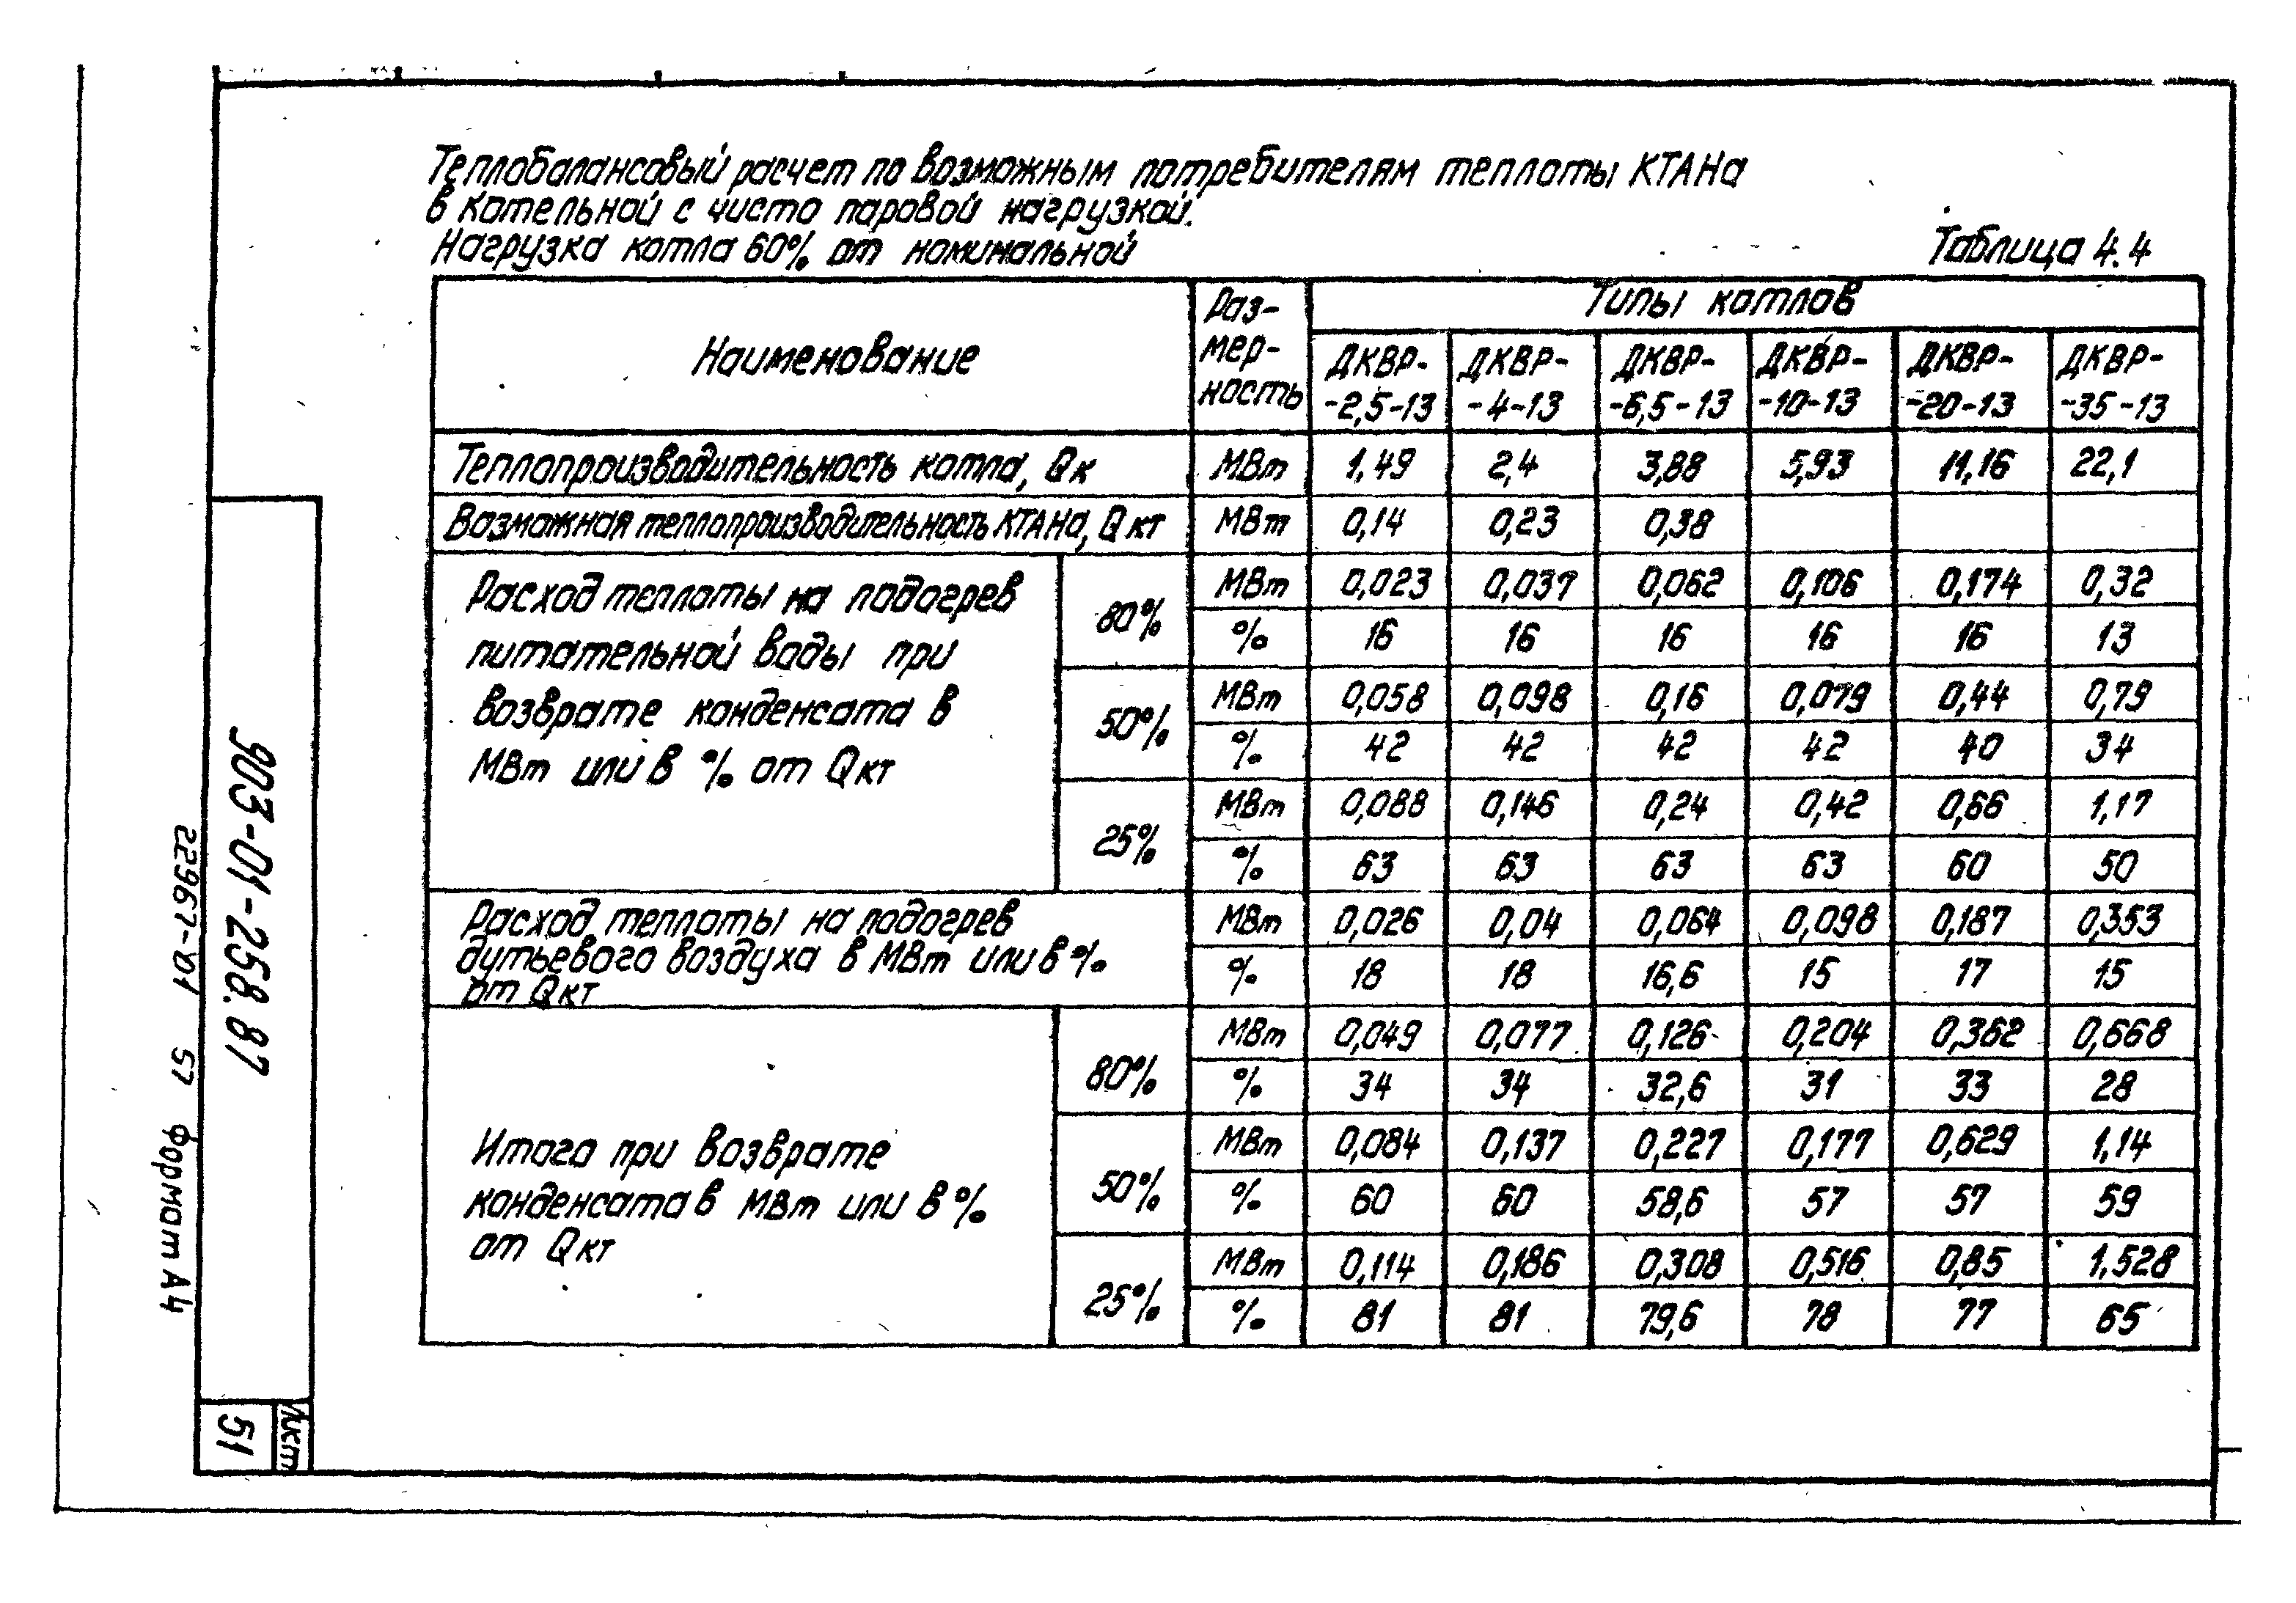 Теплобалансовый расчет по возможным потребителям теплоты КТАНа
в котельной с чисто паровой нагрузкой.
Нагрузка котла 60% от номинальной
Таблица 4.4
Наименование
Раз-
мер-
ность
Типы котлов
ДКВР-
-2,5-13
ДКВР-
-4-13
ДКВР-
-6,5-13
ДКВР-
-10-13
ДКВР-
-20-13
ДКВР-
-35-13
Теплопроизводительность котла, Qк МВт 1,49 2,4 3,88 5,93 11,16 22,1
Возможная теплопроизводительность КТАНа, Qкт МВт 0,14 0,23 0,38
Расход теплоты на подогрев
питательной воды при
возврате конденсата в
МВт или в % от Qкт
80% МВт 0,023 0,037 0,062 0,106 0,174 0,32
% 16 16 16 16 16 13
50% МВт 0,058 0,098 0,16 0,079 0,44 0,79
% 42 42 42 42 40 34
25% МВт 0,088 0,146 0,24 0,42 0,66 1,17
% 63 63 63 63 60 50
Расход теплоты на подогрев
дутьевого воздуха в МВт или в %
от Qкт
МВт 0,026 0,04 0,064 0,098 0,187 0,353
% 18 18 16,6 15 17 15
Итого при возврате
конденсата в МВт или в %
от Qкт
80% МВт 0,049 0,077 0,126 0,204 0,362 0,668
% 34 34 32,6 31 33 28
50% МВт 0,084 0,137 0,227 0,177 0,629 1,14
% 60 60 58,6 57 57 59
25% МВт 0,114 0,186 0,308 0,516 0,85 1,528
% 81 81 79,6 78 77 65
903-01-258.87
Лист
51
22967-01 57 Формат А4